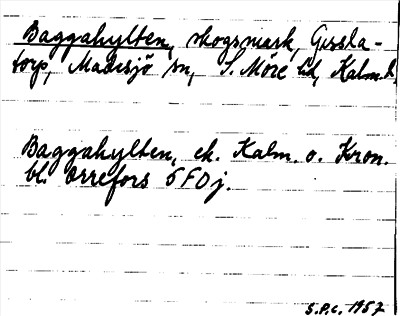 Baggahylten, skogsmark, Gissla-
torp, Madesjö sn, S. Möre hd, Kalm. l.
Baggahylten, ek. Kalm. o. Kron.
bl. Orrefors 5F0j.
S.P.C. 1957